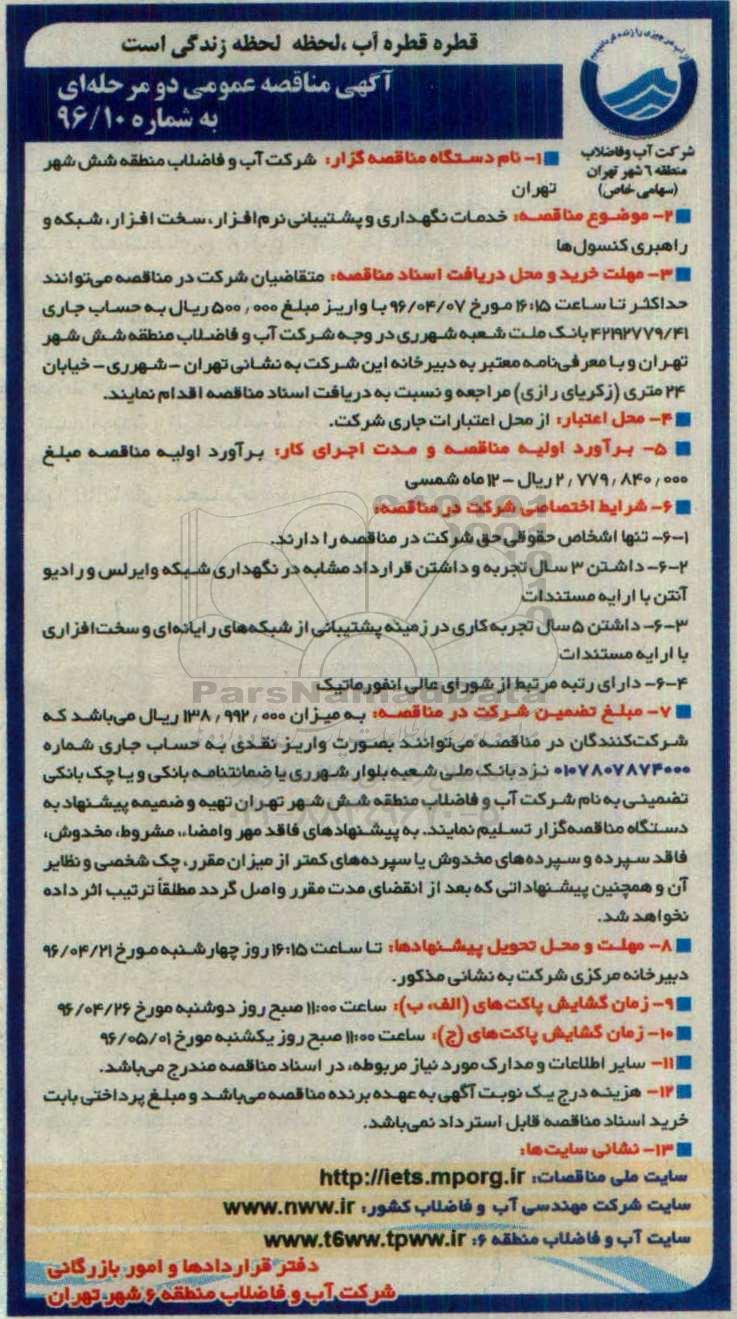 قطره قطره آب ،لحظه لحظه زندگی است
آگهی مناقصه عمومی دو مرحله‌ای
به شماره ۹۶/۱۰
شرکت آب وفاضلاب
منطقه ۶ شهر تهران
(سهامی خاص)
۱- نام دستگاه مناقصه گزار: شرکت آب و فاضلاب منطقه شش شهر
تهران
۲- موضوع مناقصه: خدمات نگهداری و پشتیبانی نرم‌افزار، سخت افزار، شبکه و
راهبری کنسول‌ها
۳- مهلت خرید و محل دریافت اسناد مناقصه: متقاضیان شرکت در مناقصه می‌توانند
حداکثر تا ساعت ۱۶:۱۵ مورخ ۹۶/۰۴/۰۷ با واریز مبلغ ۵۰۰٫۰۰۰ ریال به حساب جاری
۴۲۱۹۲۷۷۹/۴۱ بانک ملت شعبه شهرری در وجه شرکت آب و فاضلاب منطقه شش شهر
تهران و با معرفی‌نامه معتبر به دبیرخانه این شرکت به نشانی تهران - شهرری - خیابان
۲۴ متری (زکریای رازی) مراجعه و نسبت به دریافت اسناد مناقصه اقدام نمایند.
۴- محل اعتبار: از محل اعتبارات جاری شرکت.
۵- برآورد اولیه مناقصه و مدت اجرای کار: برآورد اولیه مناقصه مبلغ
۲٫۷۷۹٫۸۴۰٫۰۰۰ ریال - ۱۲ ماه شمسی
۶- شرایط اختصاصی شرکت در مناقصه:
۶-۱- تنها اشخاص حقوقی حق شرکت در مناقصه را دارند.
۶-۲- داشتن ۳ سال تجربه و داشتن قرارداد مشابه در نگهداری شبکه وایرلس و رادیو
آنتن با ارایه مستندات
۶-۳- داشتن ۵ سال تجربه کاری در زمینه پشتیبانی از شبکه‌های رایانه‌ای و سخت‌افزاری
با ارایه مستندات
۶-۴- دارای رتبه مرتبط از شورای عالی انفورماتیک
ParsNamadData
۷- مبلغ تضمین شرکت در مناقصه: به میزان ۱۳۸٫۹۹۲٫۰۰۰ ریال می‌باشد که
شرکت‌کنندگان در مناقصه می‌توانند بصورت واریز نقدی به حساب جاری شماره
۰۱۰۷۸۰۷۸۷۴۰۰۰ نزد بانک ملی شعبه بلوار شهرری یا ضمانتنامه بانکی و یا چک بانکی
تضمینی به نام شرکت آب و فاضلاب منطقه شش شهر تهران تهیه و ضمیمه پیشنهاد به
دستگاه مناقصه‌گزار تسلیم نمایند. به پیشنهادهای فاقد مهر وامضاء، مشروط، مخدوش،
فاقد سپرده و سپرده‌های مخدوش یا سپرده‌های کمتر از میزان مقرر، چک شخصی و نظایر
آن و همچنین پیشنهاداتی که بعد از انقضای مدت مقرر واصل گردد مطلقاً ترتیب اثر داده
نخواهد شد.
۸- مهلت و محل تحویل پیشنهادها: تا ساعت ۱۶:۱۵ روز چهارشنبه مورخ ۹۶/۰۴/۲۱
دبیرخانه مرکزی شرکت به نشانی مذکور.
۹- زمان گشایش پاکت‌های (الف، ب): ساعت ۱۱:۰۰ صبح روز دوشنبه مورخ ۹۶/۰۴/۲۶
۱۰- زمان گشایش پاکت‌های (ج): ساعت ۱۱:۰۰ صبح روز یکشنبه مورخ ۹۶/۰۵/۰۱
۱۱- سایر اطلاعات و مدارک مورد نیاز مربوطه، در اسناد مناقصه مندرج می‌باشد.
۱۲- هزینه درج یک نوبت آگهی به عهده برنده مناقصه می‌باشد و مبلغ پرداختی بابت
خرید اسناد مناقصه قابل استرداد نمی‌باشد.
۱۳- نشانی سایت‌ها:
سایت ملی مناقصات: http://iets.mporg.ir
سایت شرکت مهندسی آب و فاضلاب کشور: www.nww.ir
سایت آب و فاضلاب منطقه ۶: www.t6ww.tpww.ir
دفتر قراردادها و امور بازرگانی
شرکت آب و فاضلاب منطقه ۶ شهر تهران